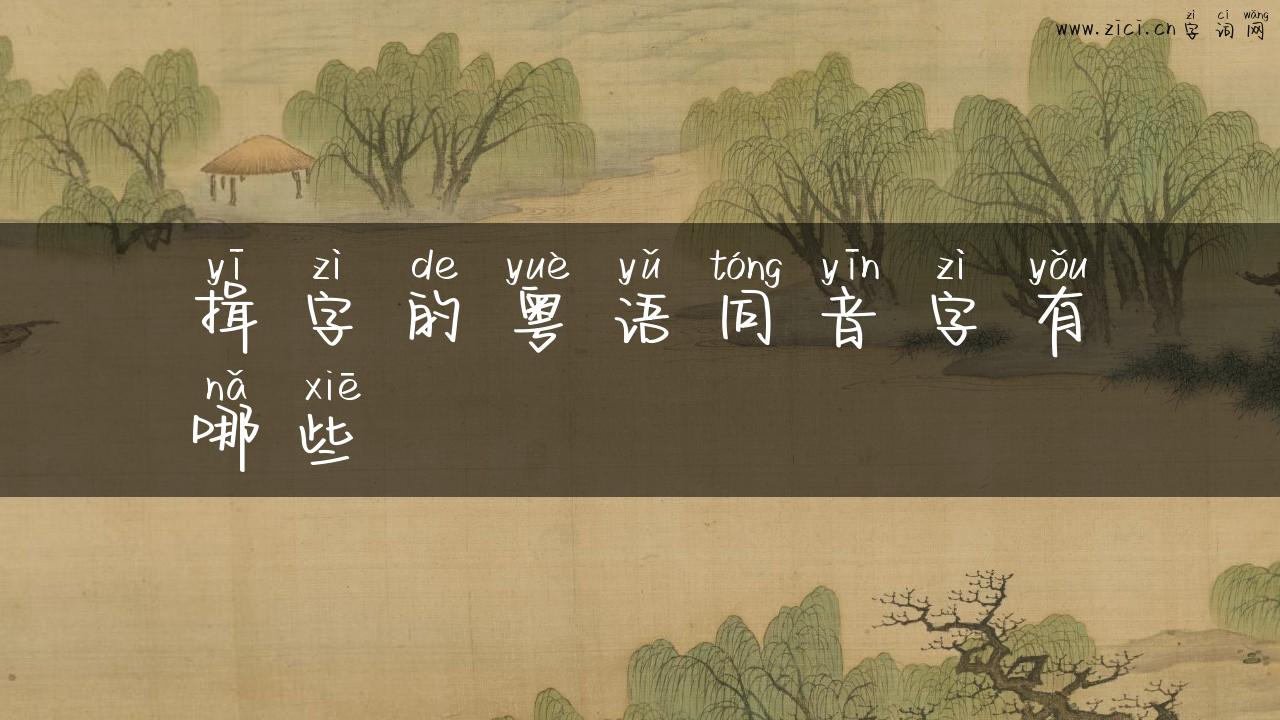 zì cí wǎng
www.zici.cn 字词网
yī zì de yuè yǔ tóng yīn zì yǒu
揖字的粤语同音字有
nǎ xiē
哪些